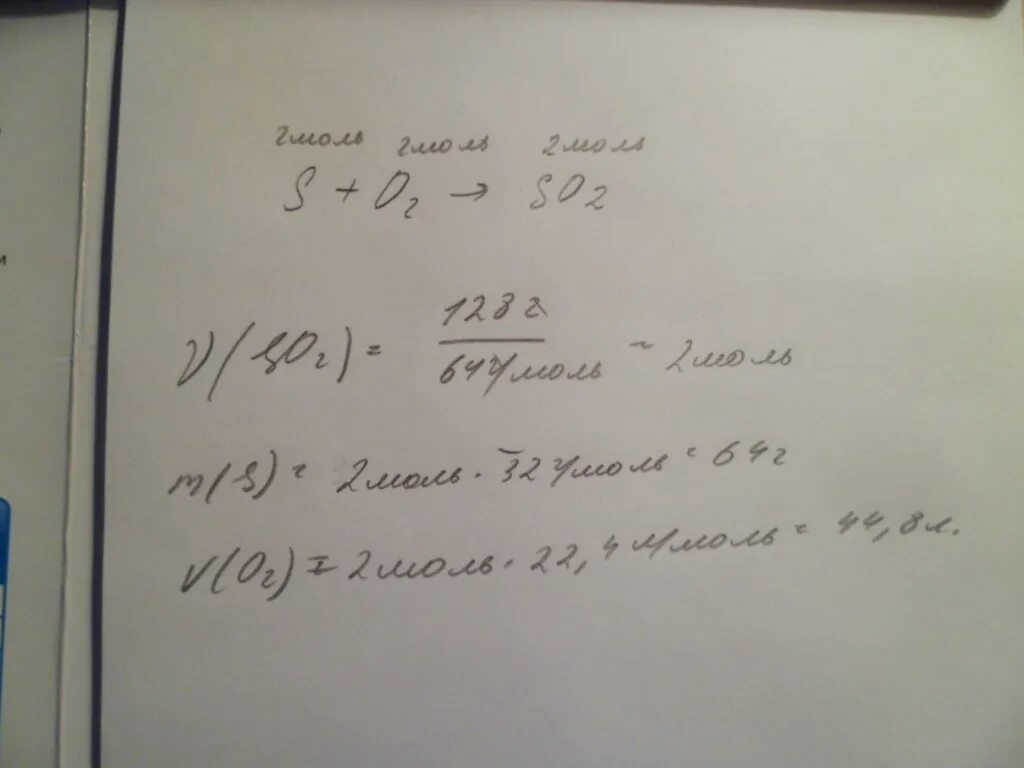 2моль 2моль 2моль
S + O2 → SO2
ν(SO2) = 128г / 64г/моль = 2моль
m(S) = 2моль · 32г/моль = 64г
V(O2) = 2моль · 22,4л/моль = 44,8л.
и